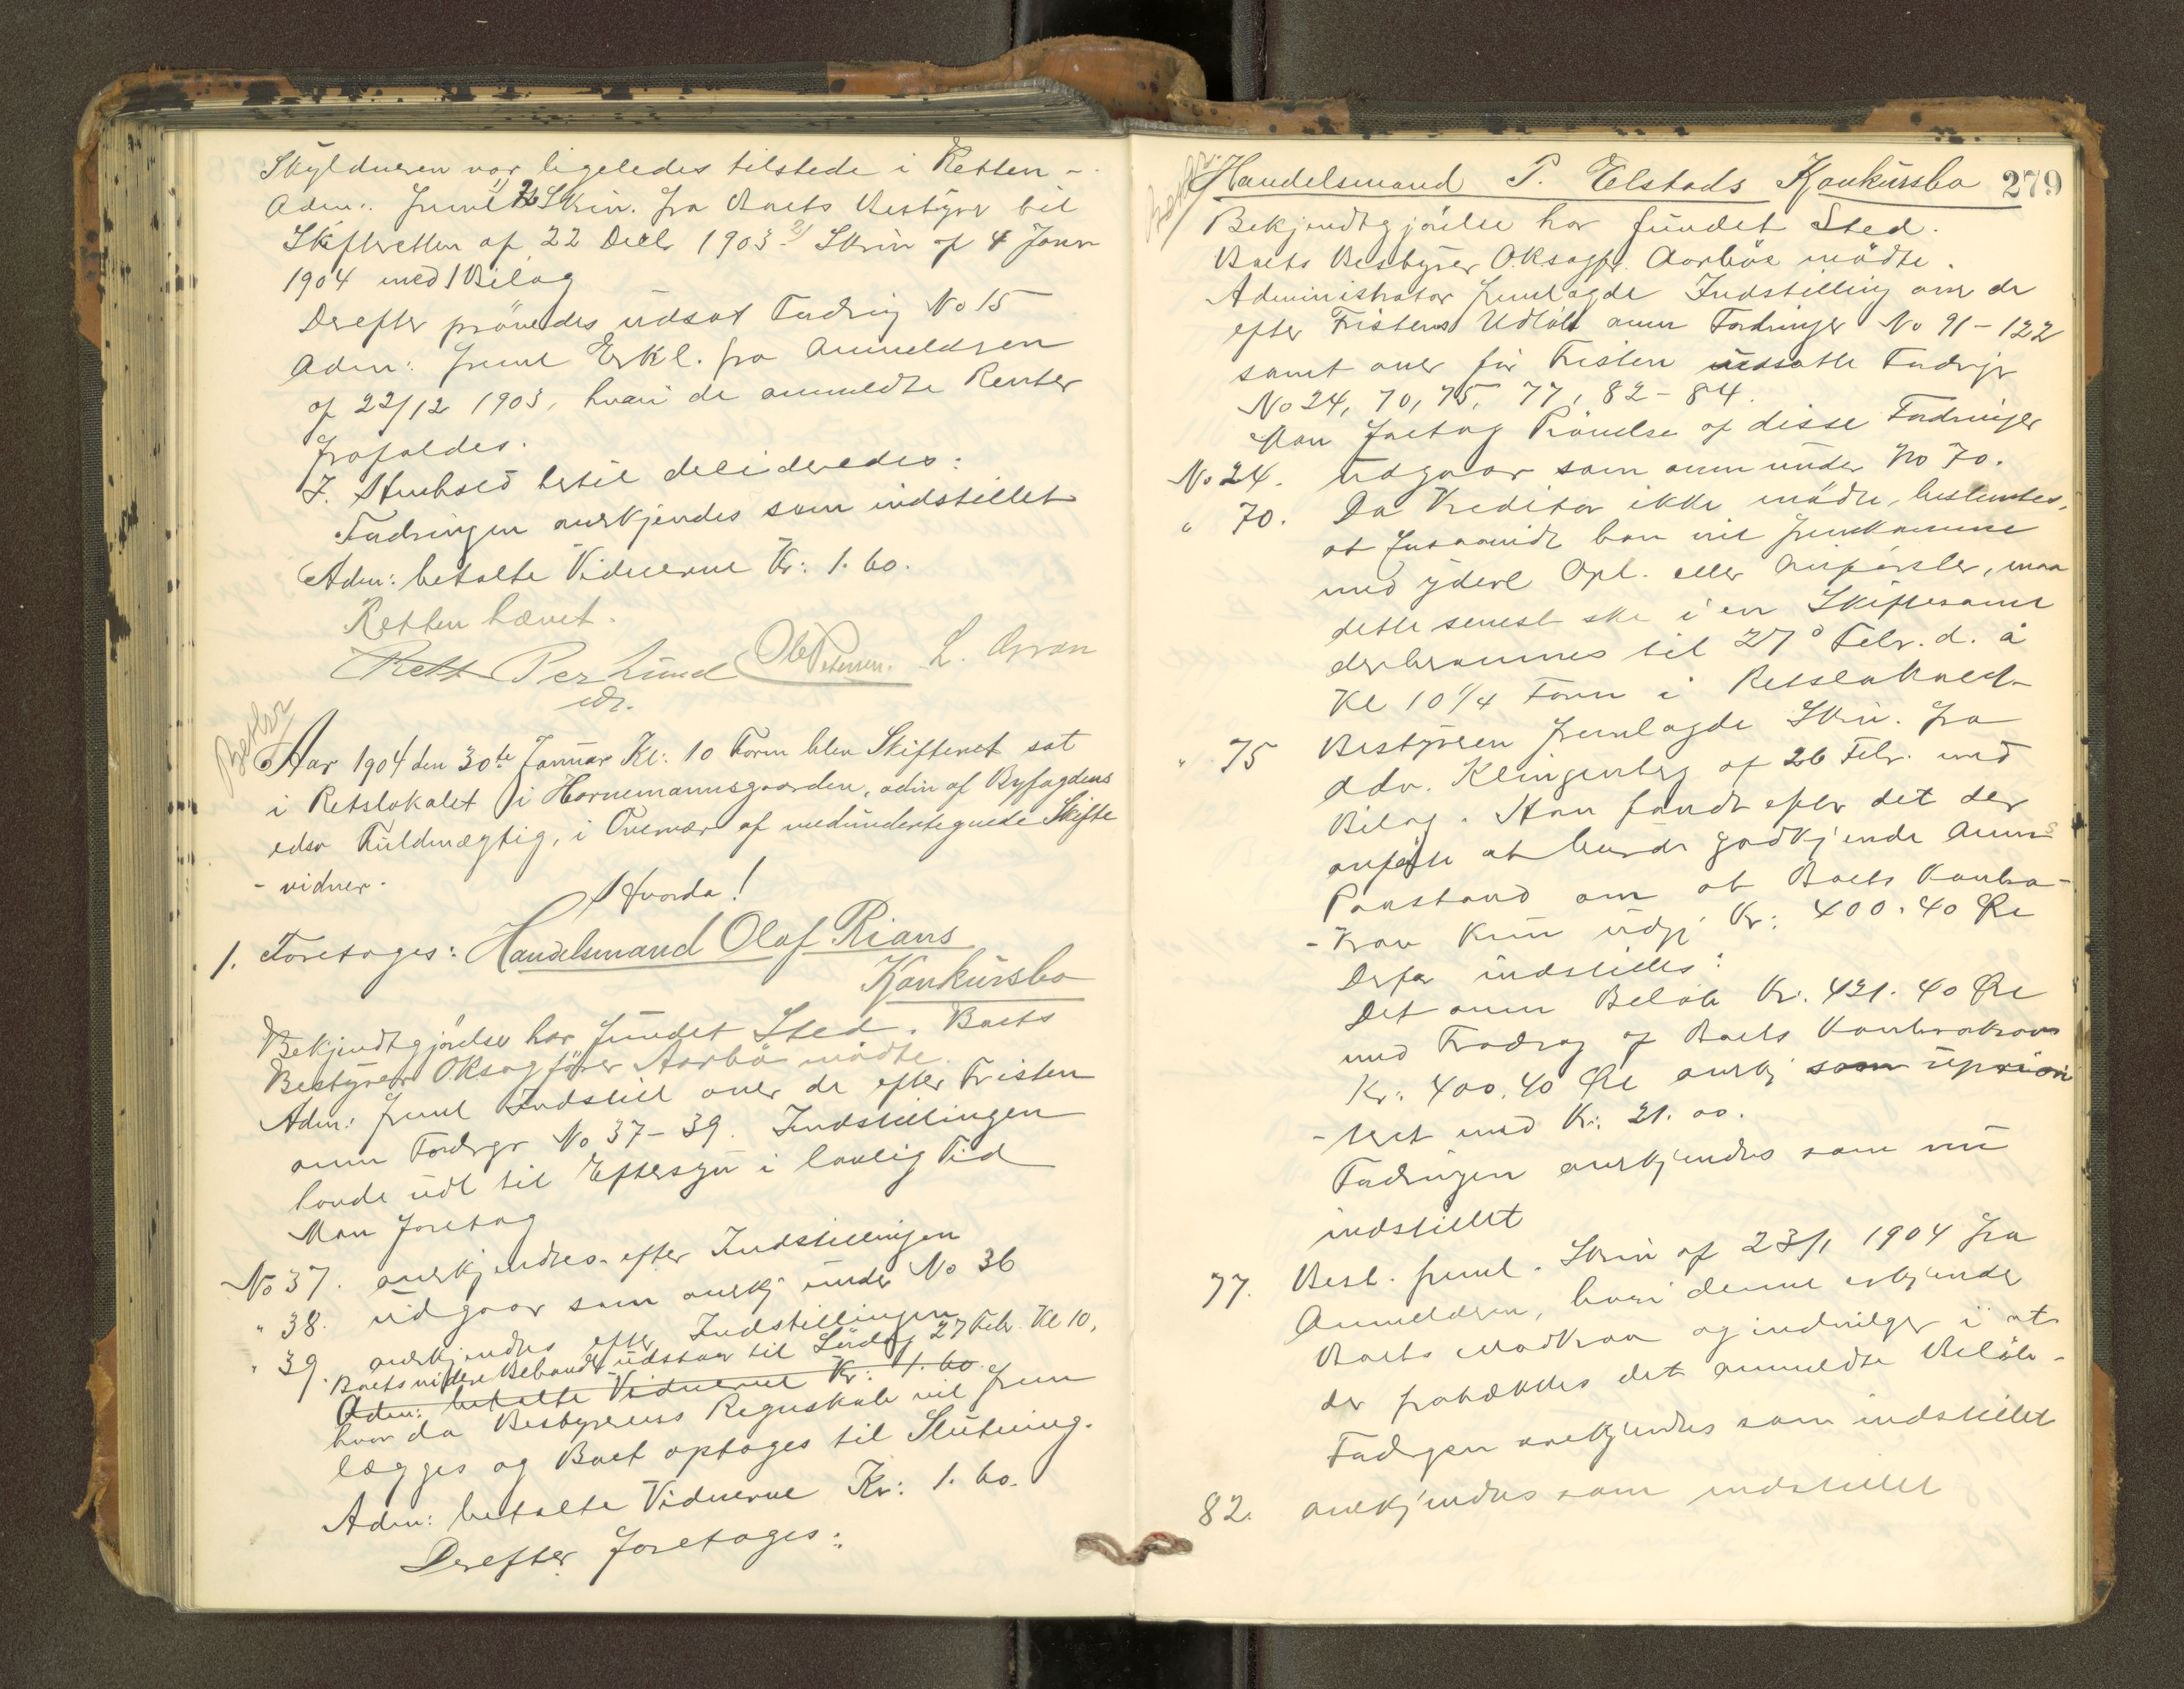 Skyldneren var ligeledes tilstede i Retten -
Adm: freml 1) Skriv. fra Boets Bestyrer til
Skifteretten af 22 Decbr 1903 2) Skriv af 4 Janr
1904 med 1 Bilag
Derefter prövedes udsat Fordring No 15
Adm: freml Erkl. fra Anmelderen
af 22/12 1903, hvori de anmeldte Renter
frafaldes.
I Henhold hertil decideredes:
Fordringen anerkjendes som indstillet
Adm: betalte Vidnerne Kr: 1.60.
Retten hævet.
Per Lund Ole Petersen. L. Gran
edsv.
Aar 1904 den 30te Januar Kl: 10 Form blev Skifteret sat
i Retslokalet i Hornemannsgaarden, adm af Byfogdens
edsv Fuldmægtig, i Overvær af medundertegnede Skifte
- vidner.
Hvorda!
1. Foretoges: Handelsmand Olaf Rians
Konkursbo
Bekjendtgjörelse har fundet Sted. Boets
Bestyrer OKsagförer Aarbö mödte.
Adm: freml Indstill over de efter Fristen
anm Fordrgr No 37-39. Indstillingen
havde udl til Eftersyn i lovlig Tid
Man foretog
No 37. anerkjendtes efter Indstillingen
" 38. udgaar som anerkj under No 36
" 39. anerkjendtes efter Indstillingen
Boets videre Behandl udstaar til Lördag 27 Febr. Kl 10,
Adm: betalte Vidnerne Kr: 1.60.
hvor da Bestyrerens Regnskab vil frem
lægges og Boet optages til Slutning.
Adm: betalte Vidnerne Kr: 1.60.
Derefter foretoges:
279
Handelsmand P. Elstads Konkursbo
Bekjendtgjörelse har fundet Sted.
Boets Bestyrer OKsagfr. Aarböe mödte.
Administrator fremlagde Indstilling over de
efter Fristens Udlöb anm Fordringer No 91-122
samt over för Fristen udsatte Fordrgr
No 24, 70, 75, 77, 82-84.
Man foretog Prövelse af disse Fordringer
No 24. Udgaar som anm under No 70.
" 70. Da Kreditor ikke mödte, bestemtes,
at forsaavidt han vil fremkomme
med yderl Opl. eller Anförsler, maa
dette senest ske i en Skiftesaml
der berammes til 27d Febr. d. å
Kl 10 1/4 Form i Retslokalet
" 75 Bestyreren fremlagde Skriv. fra
Adv. Klingenberg af 26 Febr. med
Bilag. Han fandt efter det der
anförte at burde godkjende Anms
Paastand om at Boets Kontra-
- krav kun udgj Kr: 400.40 Öre
Derfor indstilles:
Det anm Belöb Kr. 421.40 Öre
med Fradrag af Boets Kontrakrav
Kr: 400.40 Öre anerkj som uprion
- teret med Kr: 21.00.
Fordringen anerkjendes som nu
indstillet
77. Best. freml. Skriv af 23/1 1904 fra
Anmelderen, hvori denne erkjender
Boets Modkrav og indvilger i at
der fratrækkes det anmeldte Belöb -
Fodrgen anerkjendes som indstillet
82. anerkjendes som indstillet